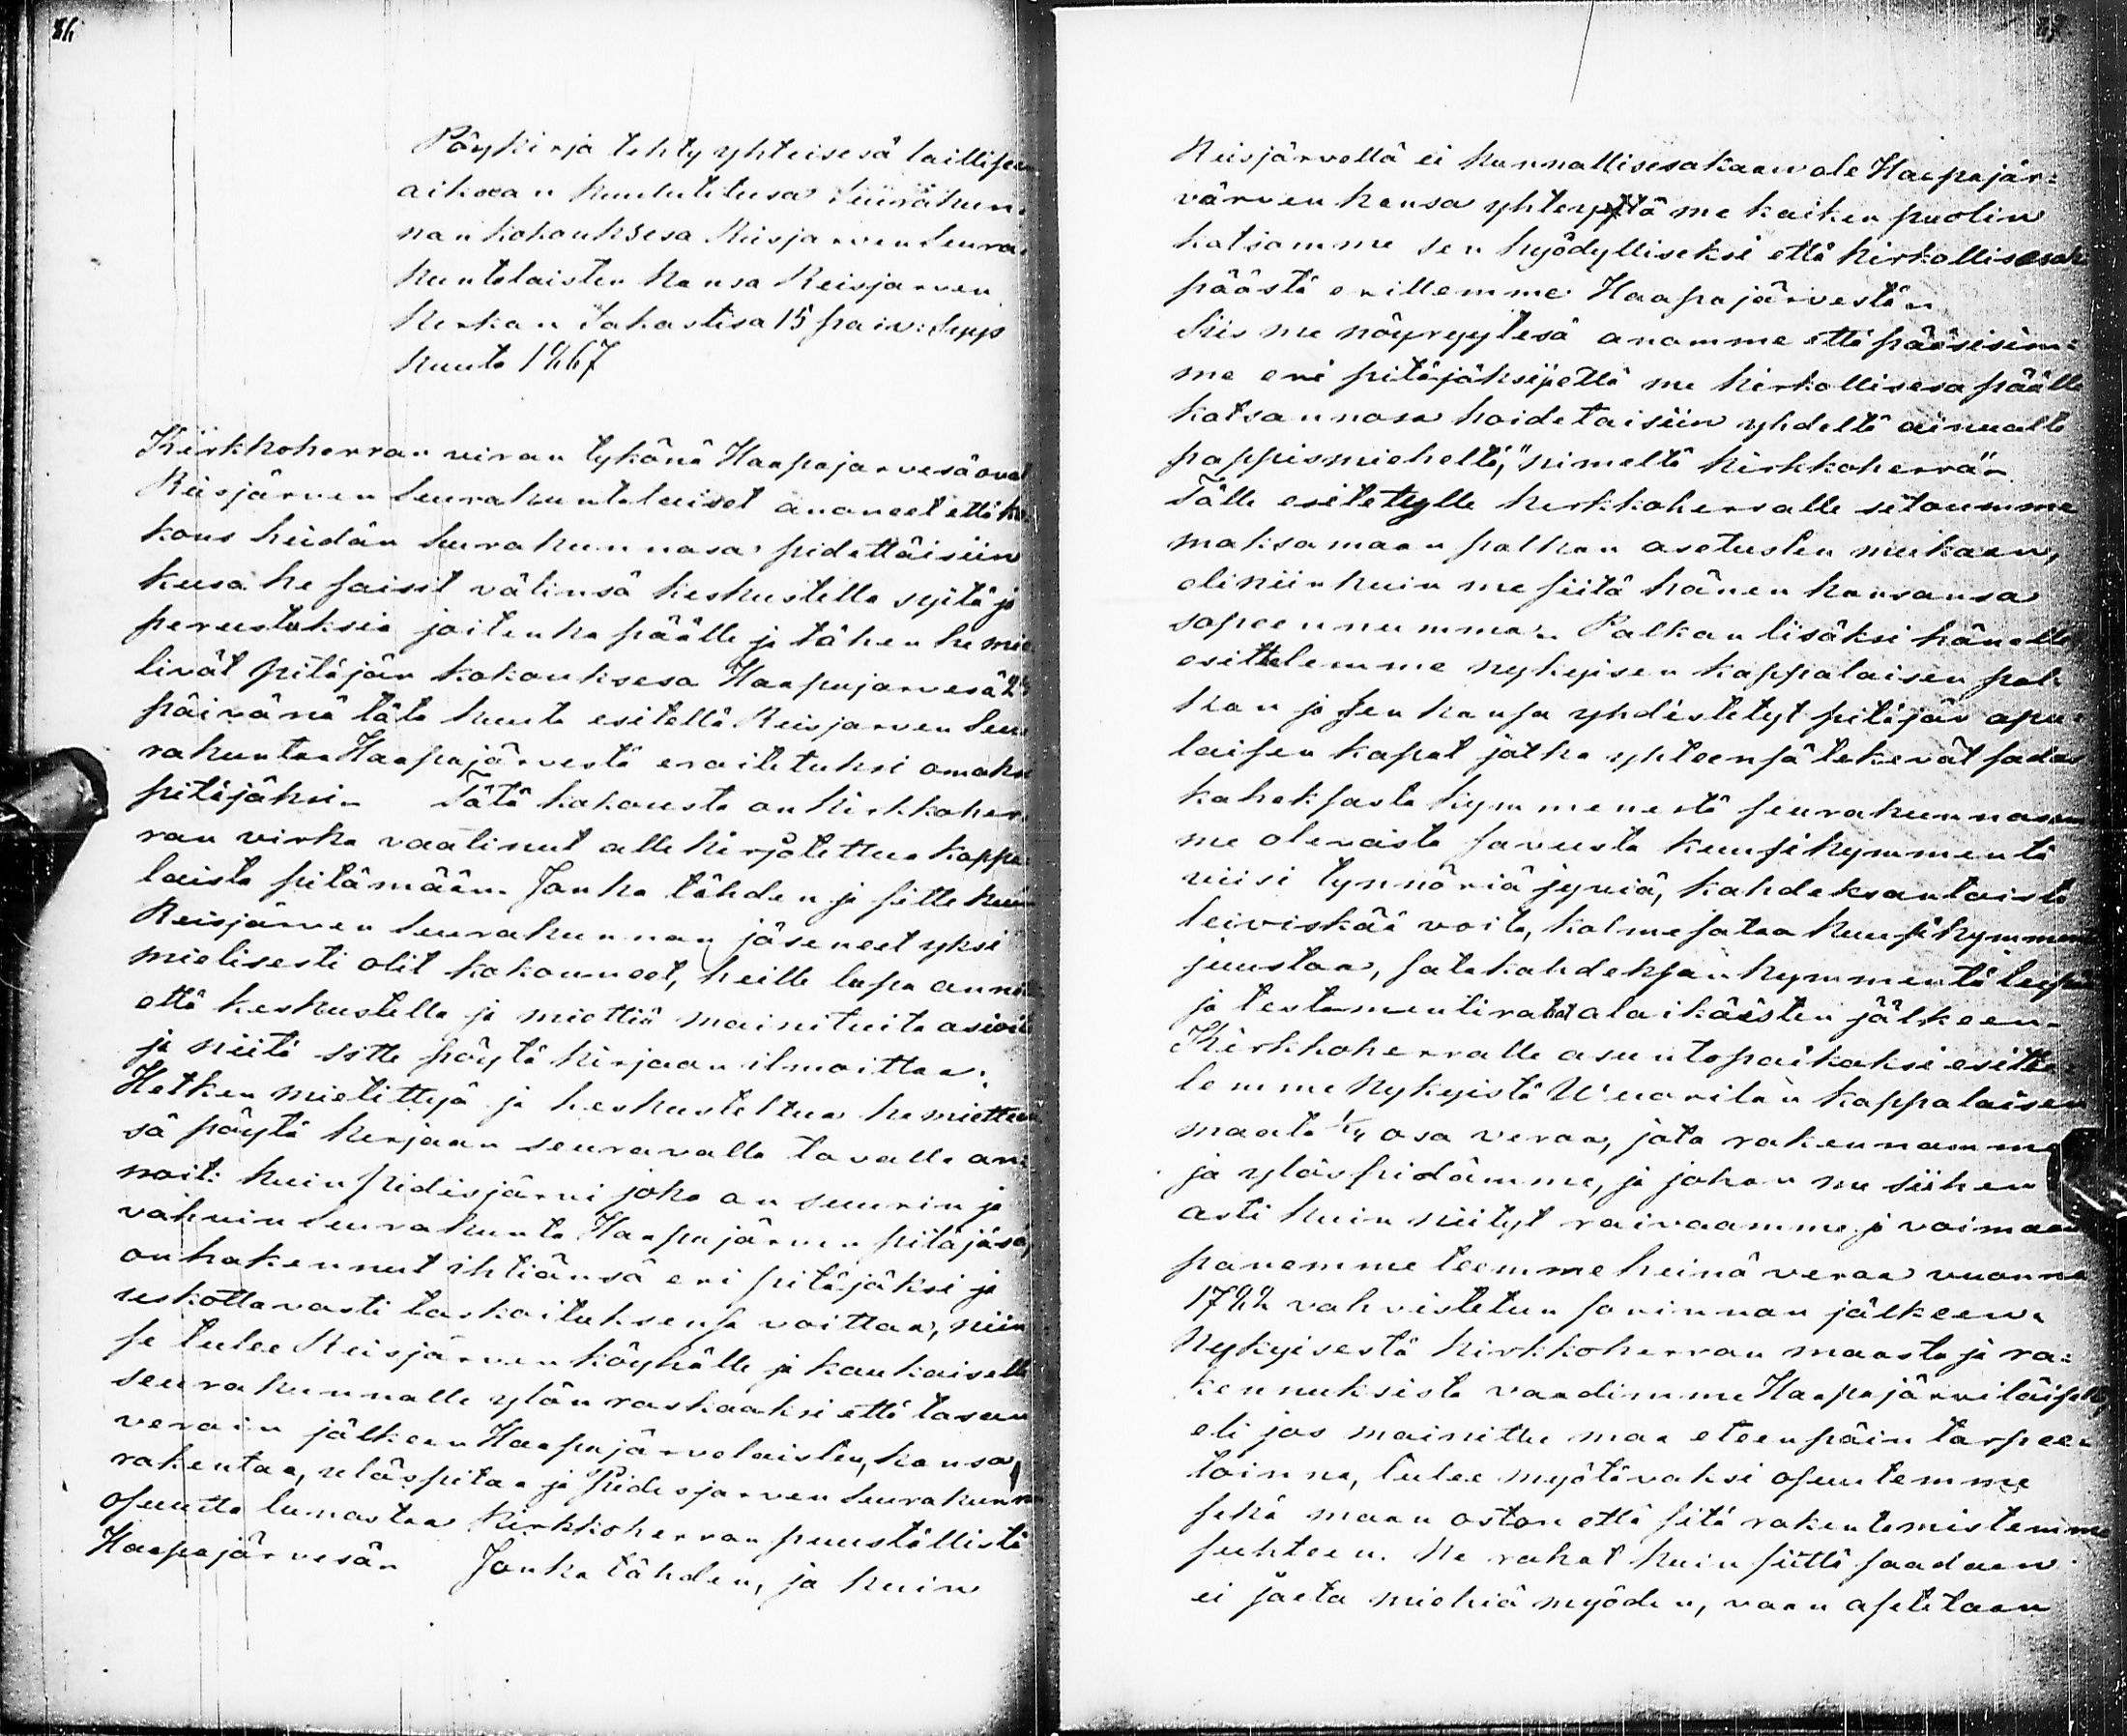 Pöykirja tehty yhteisesä laillisen
aikaan kuulutitusa Seuräkun-
nan kokouksesa Reisjarven Seura-
kuntalaisten kansa Reisjarven
kirkan Sakastisa 15 paiv: Syys
kuuta 1867
Kirkkoherran viran tykönä Haapajarvesä ovat
Reisjärven Seurakuntalaiset ananeet että ko-
kous heidän seurakunnasa pidettäisiin
kusa he saisit välinsä keskustella syitä ja
perustuksia joitenka päälle ja tähen he mie
livät pitäjän kokouksesa Haapajarvesä
päivänä tätä kuuta esitellä Reisjarven Seu
rakuntaa Haapajärvestä eroitetuksi omaksi
pitäjäksi. Tätä kokousta on kirkkoher-
ran virka vaatinut alle kirjotettua kappa-
laista pitämään. Jonka tähden ja sitte kuin
Reisjärven Seurakunnan jäseneet yksi
mielisesti olit kokouneet, heille lupa annet
että keskustella ja miettiä mainituita asioit
ja niitä sitte pöytä kirjaan ilmoittaa.
Hetken mietittyä ja keskusteltua he mietteen
sä pöytä kirjaan seuravalla tavalla an
noit: kuin Pidisjärvi joka on suurin ja
vahvin Seurakunta Haapajärven pitäjäsä,
on hakennut ihtiänsä eri pitäjäksi ja
uskottavasti tarkoituksensa voittaa, niin
se tulee Reisjärven köyhälle ja kaukaiselle
seurakunnalle ylön raskaaksi että tasan
verain jälkeen Haapajärvelaisten, kansa
rakentaa, ylöspitaa ja Pidisjarven Seurakunnan
osuutta lunastaa Kirkkoherran puuställistä
Haapajärvesä. Jonka tähden, ja kuin
Reisjärvellä ei kunnallisesakaan ole Haapajär-
värven kansa yhteyttä me kaiken puolin
katsomme sen hyödylliseksi että kirkollisesaki
päästä erillemme Haapajärvestä.
Siis me nöyryytesä anomme että pääsisim-
me eri pitäjäksi, että me kirkollisesa päälle
katsannosa hoidetaisiin yhdeltä ainualta
pappismieheltä, "nimeltä kirkkoherra".
Tälle esitetylle kirkkoherralle sitoumme
maksamaan palkan asetusten mukaan,
eli niinkuin me siitä hänen kansansa
sopeennumma. Palkan lisäksi hänelle
esittelemme nykyisen kappalaisen pal-
kan ja sen kansa yhdistetyt pitäjän apu-
laisen kapat jotka yhteensä tekevät sadas
kaheksasta kymmenestä seurakunnasam
me olevasta savusta kuusikymmentä
viisi tynnöriä jyviä, kahdeksantaista
leiviskää voita, kolmesataa kuusikymmentä
juustoa, satakahdeksankymmentä leipä
ja testamentirahat alaikäisten jälkeen.
Kirkkoherralle asuntopaikaksi esitte-
lemme nykyistä Wuorilan kappalaisen
maata 1/4 osa veraa, jota rakennamme
ja ylöspidämme, ja johon me siihen
asti kuin niityt raivaamme ja voimaan
panemme teemme heinä veraa vuonna
1722 vahvistetun sovinnan jälkeen.
Nykyisestä kirkkoherran maasta ja ra-
kennuksista vaadimme Haapajärviläisiltä,
eli jos mainittu maa eteenpäin tarpee-
toinna, tulee myötäväksi osuutemme
sekä maan oston että sitä rakentamistemme
suhteen. Ne rahat kuin siittä saadaan
ei jaeta miehiä myöden, vaan asetetaan